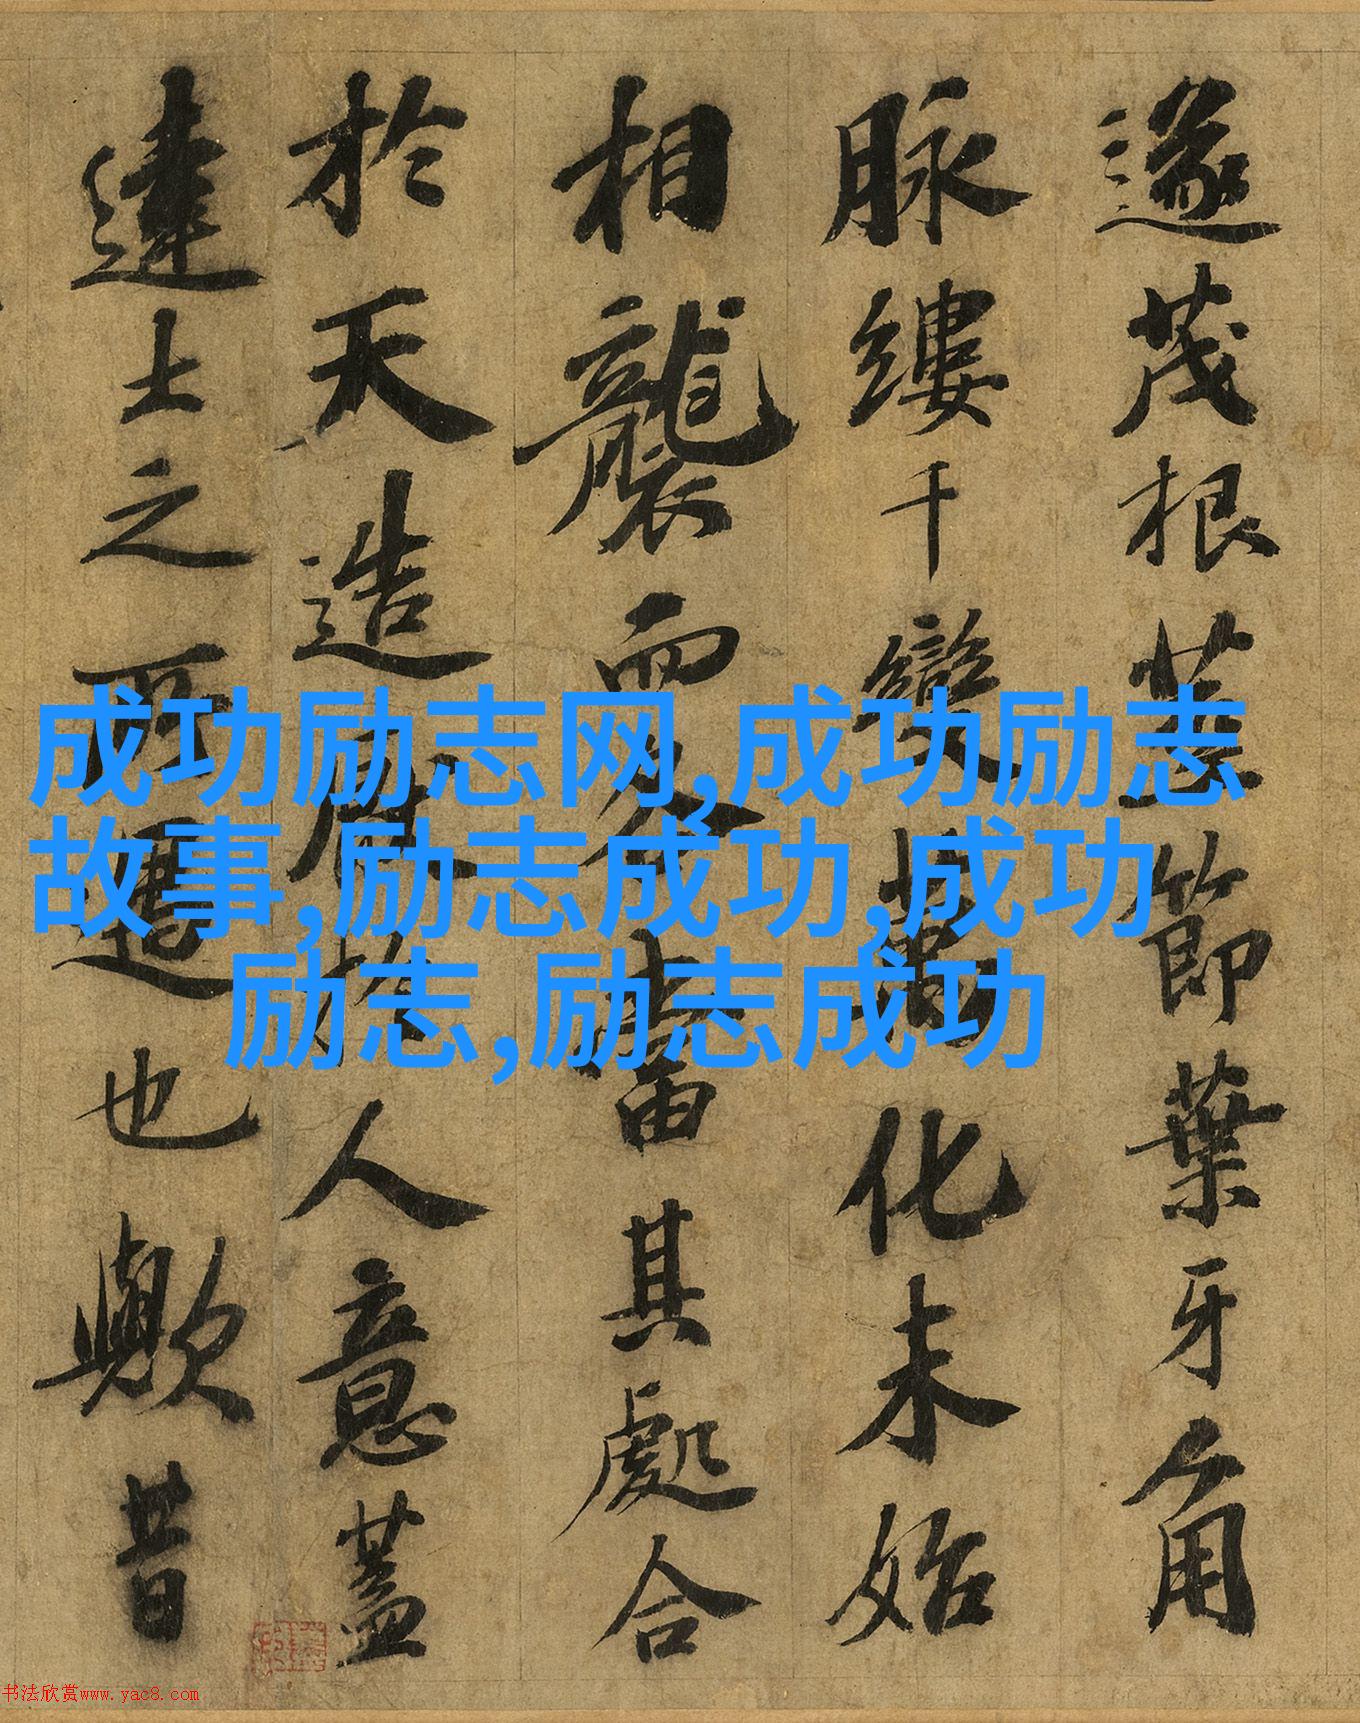 遂茂根荄節葉牙角
脉縷千變萬化未始
相襲而各當其處合
於天造厭於人意蓋
達士之所也歟昔
成功励志网,成功励志
故事,励志成功,成功
励志,励志成功
书法欣赏www.yac8.com